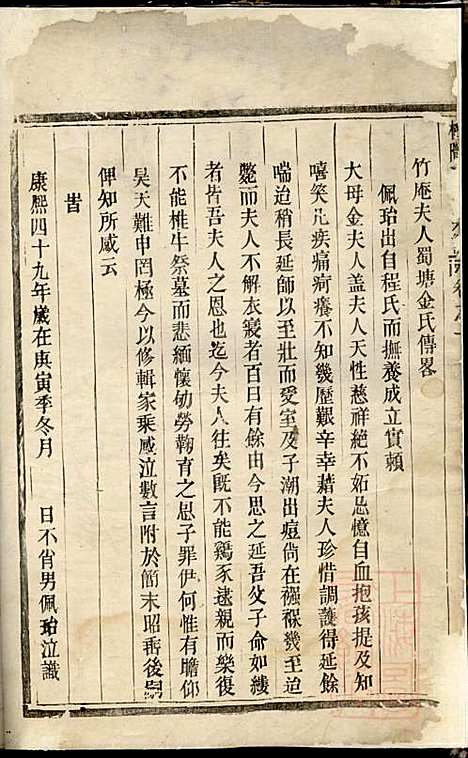 竹庵夫人蜀塘金氏傳畧
佩珆出自程氏而撫養成立實賴
大母金夫人盖夫人天性慈祥絕不妬忌憶自血抱孩提及知
嘻笑凡疾痛疴癢不知幾歷艱辛幸藉夫人珍惜調護得延餘
喘迨稍長延師以至壯而受室及子潮出痘尙在襁褓幾至迨
斃而夫人不解衣寢者百日有餘由今思之延吾父子命如綫
者皆吾夫人之恩也迄今夫人往矣旣不能鷄豕逮親而樂復
不能椎牛祭墓而悲緬懷劬勞鞠育之恩子罪伊何惟有瞻仰
昊天難申罔極今以修輯家乘感泣數言附於簡末昭垂後嗣
俾知所感云
旹
康熙四十九年歲在庚寅季冬月 日不肖男佩珆泣識